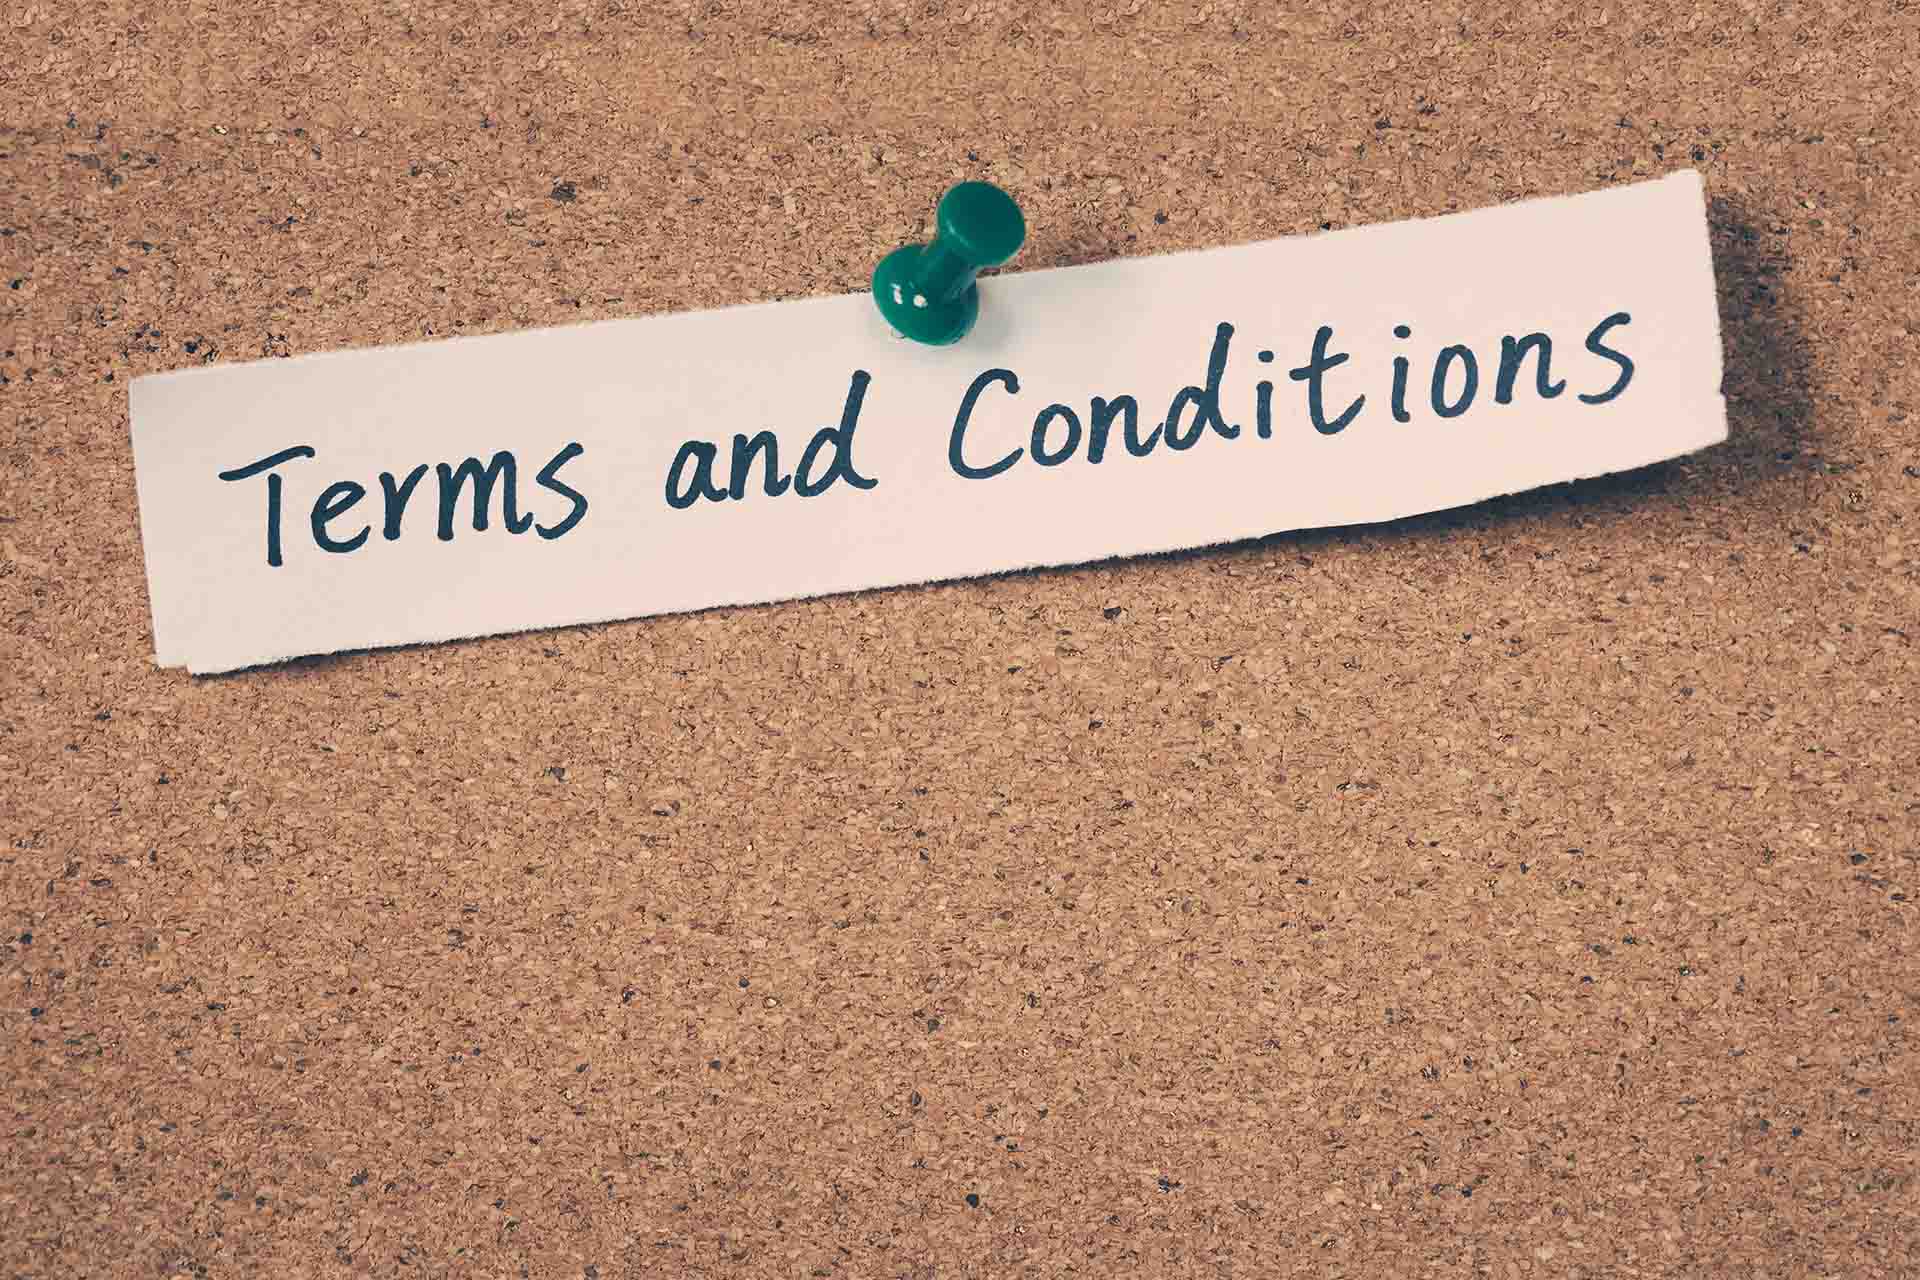 Terms and Conditions